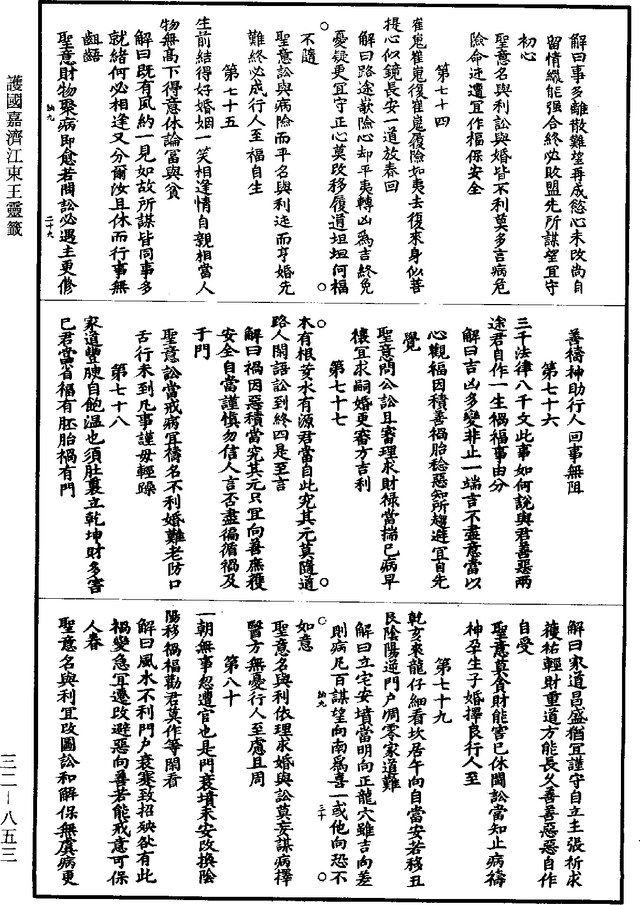 解曰事多離散難望再成慾心未改尚自
留情纔能强合終必敗盟先所謀望宜守
初心
聖意名與利訟與婚皆不利莫多言病危
險命迍邅宜作福保安全
第七十四
崔嵬崔嵬復崔嵬履險如夷去復來身似菩
提心似鏡長安一道放春回
解曰路途嶮險心却平夷轉凶爲吉終免
憂疑更宜守正心莫改移履道坦坦何福
不隨
聖意訟與病險而平名與利迍而亨婚先
難終必成行人至福自生
第七十五
生前結得好婚姻一笑相逢情自親相當人
物無高下得意休論富與貧
解曰既有夙約一見如故所謀皆同事多
就緒何必相逢又分爾汝且休而行事無
齟齬
聖意財物聚病即愈若問訟必遇主更修
善禱神助行人回事無阻
第七十六
三千法律八千文此事如何說與君善惡兩
途君自作一生禍福事由分
解曰吉凶多變非止一端言不盡意當以
心觀福因積善禍胎稔惡知所趨避宜自先
覺
聖意問公訟且審理求財祿當揣己病早
禳宜求嗣婚更審方吉利
第七十七
木有根荄水有源君當自此究其元莫隨道
路人閒語訟到終凶是至言
解曰禍因惡積當究其元只宜向善庶獲
安全自當謹慎勿信人言否盡徧循禍及
于門
聖意訟當戒病宜禱名不利婚難老防口
舌行未到凡事謹毋輕躁
第七十八
家道豐腴自飽溫也須肚裏立乾坤財多害
己君當省福有胚胎禍有門
解曰家道昌盛猶宜謹守自立主張祈求
獲祐輕財重道方能長久善善惡惡自作
自受
聖意莫貪財能害己休鬭訟當知止病禱
神孕生子婚擇良行人至
第七十九
乾亥來龍仔細看坎居午向自當安若移丑
艮陰陽逆門户凋零家道難
解曰立宅安墳當明向正龍穴雖吉向差
則病凡百謀望向南爲喜一或他向恐不
如意
聖意名與利依理求婚與訟莫妄謀病擇
醫方無憂行人至慮且周
第八十
一朝無事忽遭官也是門衰墳未安改換陰
陽移禍福勸君莫作等閑看
解曰風水不利門户衰蹇致招殃咎有此
禍變急宜遷改避惡向善若能戒意可保
人眷
聖意名與利宜改圖訟和解保無虞病更
護國嘉濟江東王靈籤
三二－八五三